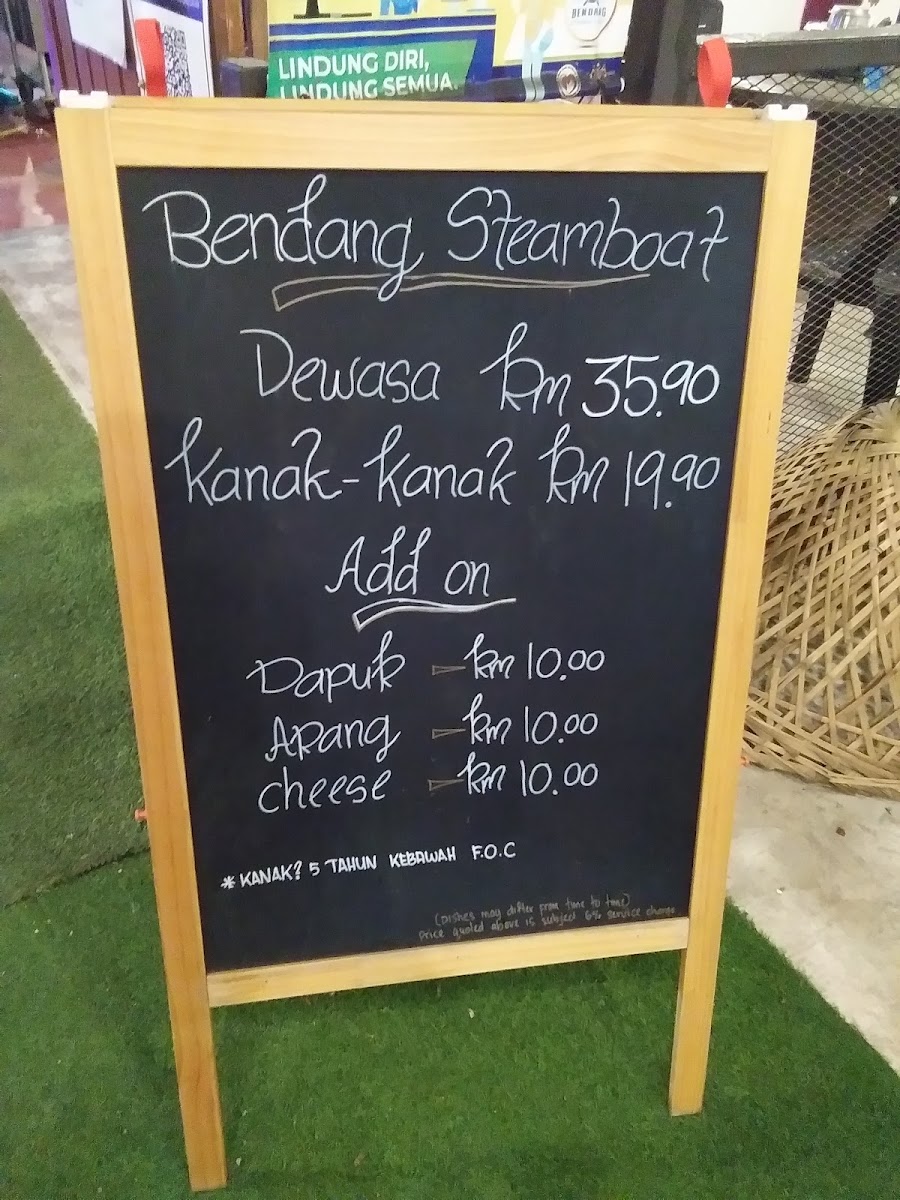 BENDANG
LINDUNG DIRI,
LINDUNG SEMUA.
Bendang Steamboat
Dewasa RM 35.90
Kanak-Kanak RM 19.90
Add on
Dapur - RM 10.00
Arang - RM 10.00
cheese - RM 10.00
* KANAK² 5 TAHUN KEBAWAH F.O.C
(Dishes may differ from time to time)
Price quoted above is subject 6% service charge